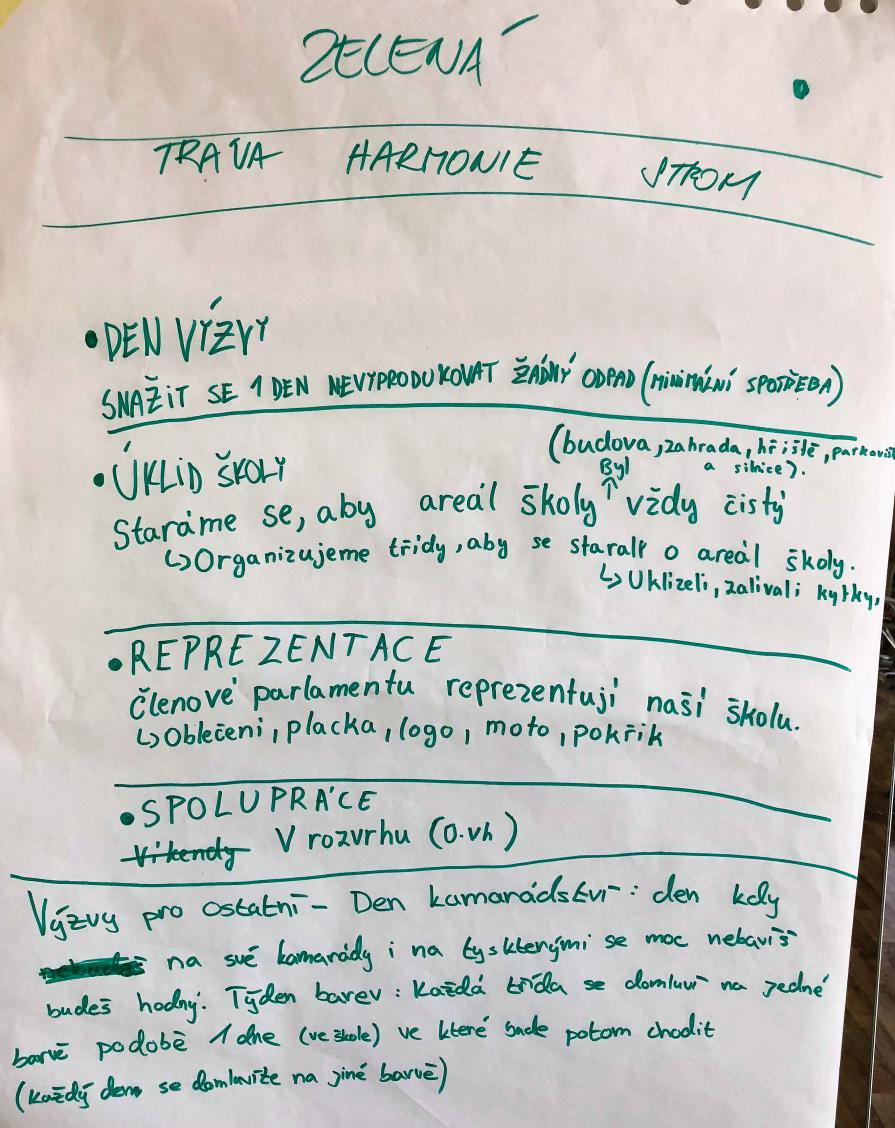 ZELENÁ
TRAVA HARMONIE STROM
• DEN VÍZVY
SNAŽIT SE 1 DEN NEVYPRODUKOVAT ŽÁDNÝ ODPAD (MINIMÁLNÍ SPOTŘEBA)
(budova, zahrada, hřiště, parkovišt
a silnice).
• ÚKLID ŠKOLY
Byl
Staráme se, aby areál školy vždy čistý
↳ Organizujeme třídy, aby se starali o areál školy.
↳ Uklízeli, zalívali kytky,
• REPREZENTACE
Členové parlamentu reprezentují naší školu.
↳ Oblečení, placka, logo, moto, pokřik
• SPOLUPRÁCE
Víkendy V rozvrhu (0.vh)
Výzvy pro ostatní - Den kamarádství: den kdy
nebudeš na své kamarády i na tyskterými se moc nebavíš
budeš hodný. Týden barev: Každá třída se domluví na jedné
barvě podobě 1 dne (ve škole) ve které bude potom chodit
(každý den se domluvíte na jiné barvě)